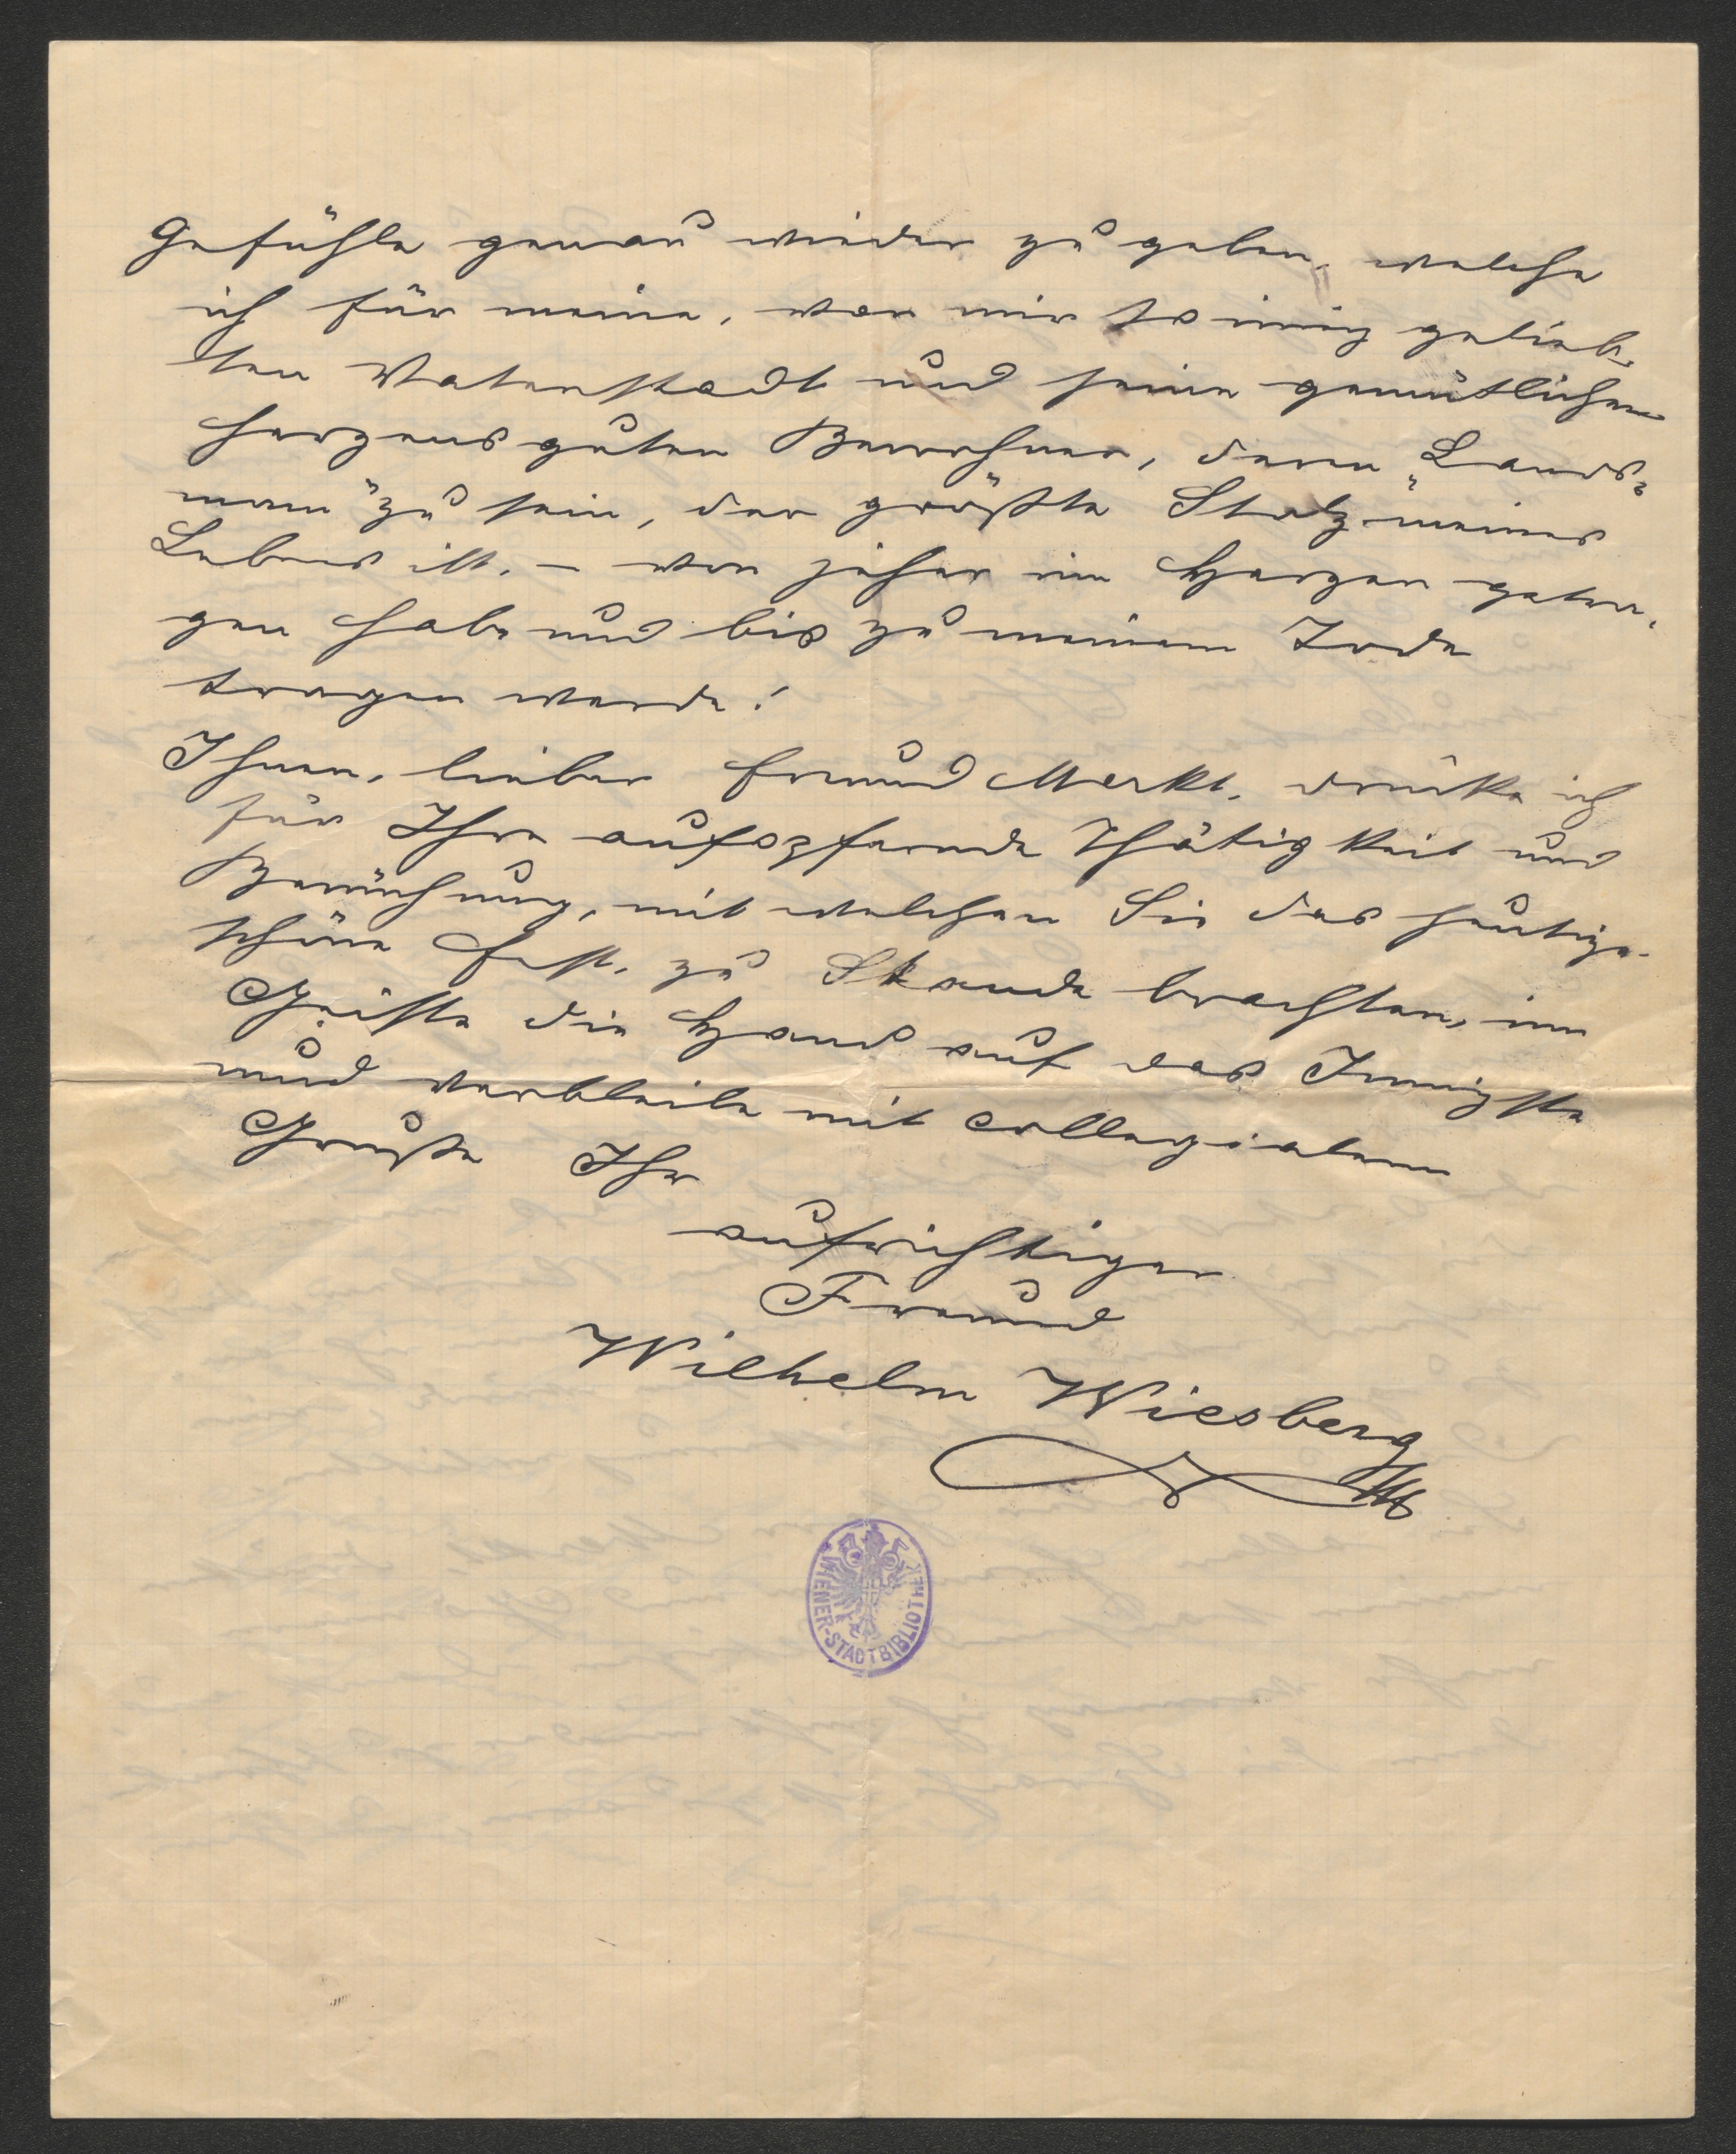 Gefühle genau wieder zu geben, welche
ich für meine, von mir so innig gelieb-
ten Vaterstadt und seine gemütlichen
herzensguten Bewohner, deren „Lands-
mann“ zu sein, der größte Stolz meines
Lebens ist. – von jeher im Herzen getra-
gen habe und bis zu meinem Tode
tragen werde!
Ihnen, lieber Freund Merkt, drücke ich
für Ihre aufopfernde Thätigkeit und
Bemühung, mit welchen Sie das heutige
schöne Fest, zu Stande brachten, im
Geiste die Hand auf das Innigste
und verbleibe mit collegialem
Gruße Ihr
aufrichtiger
Freund
Wilhelm Wiesberg
WIENER-STADTBIBLIOTHEK